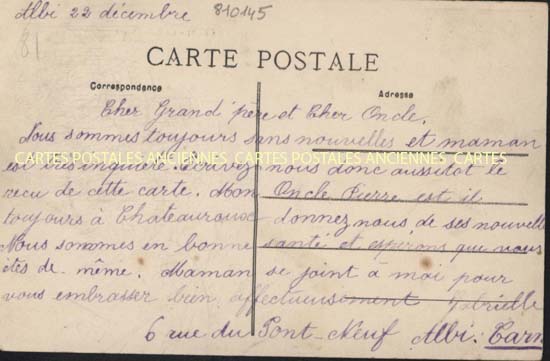 Albi 22 décembre 810145
81
CARTE POSTALE
Correspondance Adresse
Cher Grand'père et Cher Oncle,
Nous sommes toujours sans nouvelles et maman
est très inquière. Ecrivez nous donc aussitôt le
CARTES POSTALES ANCIENNES CARTES POSTALES ANCIENNES CARTES
recu de cette carte. Mon Oncle Pierre est il
toujours à Chateauroux donnez nous de ses nouvelles
Nous sommes en bonne santé et espérons que vous
êtes de même. Maman se joint à moi pour
vous embrasser bien affectueusement Gabrielle
6 rue du Pont-Neuf Albi. Tarn